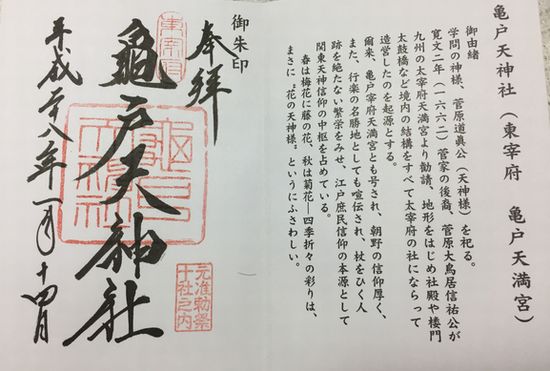 亀戸天神社(東宰府 亀戸天満宮)
御由緒
学問の神様、菅原道眞公(天神様)を祀る。
寛文二年(一六六二)菅家の後裔、菅原大鳥居信祐公が
九州の太宰府天満宮より勧請、地形をはじめ社殿や楼門
太鼓橋など境内の結構をすべて太宰府の社にならって
造営したのを起源とする。
爾来、亀戸宰府天満宮とも号され、朝野の信仰厚く、
また、行楽の名勝地としても喧伝され、杖をひく人
跡を絶たない繁栄をみせ、江戸庶民信仰の本源として
関東天神信仰の中枢を占めている。
春は梅花に藤の花、秋は菊花―四季折々の彩りは、
まさに“花の天神様”というにふさわしい。
御朱印
奉拝
東宰府
龜戸天神社
元准勅祭
十社之内
平成二十八年一月十四日